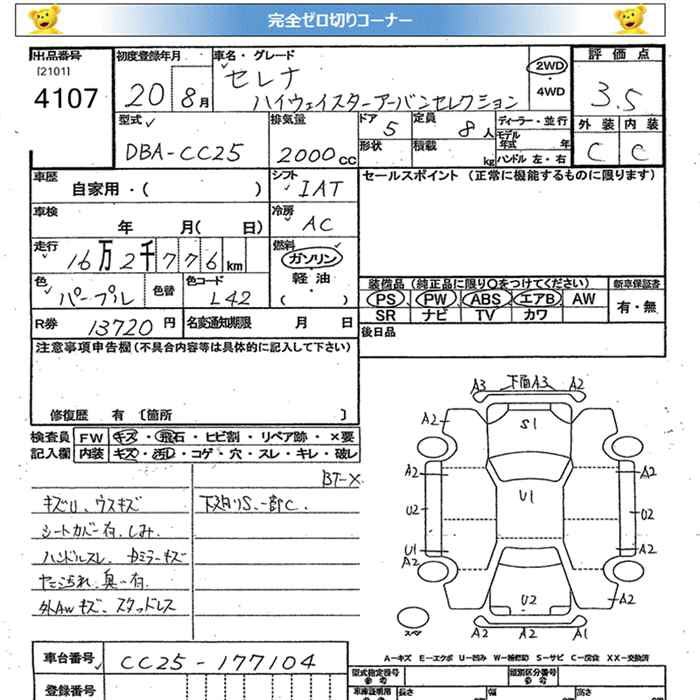 完全ゼロ切りコーナー
出品番号
[2101]
4107
初度登録年月
20 8月
車名・グレード
セレナ
ハイウェイスターアーバンセレクション
2WD
・
4WD
評価点
3.5
外装 内装
C C
型式
DBA-CC25
排気量
2000cc
ドア 5
形状
定員 8人
積載 kg
ディーラー・並行
モデル年式 年
ハンドル 左・右
車歴
自家用・( )
シフト
IAT
セールスポイント (正常に機能するものに限ります)
車検
年 月( 日)
冷房
AC
走行
16万2千776km
燃料
ガソリン
軽油
・
( )
色
パープル
色替
色コード
L42
装備品(純正品に限り○をつけてください)
新車保証書
PS PW ABS エアB AW
SR ナビ TV カワ
有・無
R券 13720円
名変通知期限 月 日
後日品
注意事項申告欄(不具合内容等は具体的に記入して下さい)
修復歴 有 [箇所 ]
検査員記入欄
FW キズ・飛石・ヒビ割・リペア跡・×要
内装 キズ・汚レ・コゲ・穴・スレ・キレ・破レ
BT-X
キズU、ウスキズ
下廻りS、一部C.
シートカバー有.しみ.
ハンドルスレ、
キズ
外AWキズ、スタッドレス
A3 下面A3 A2
A2 S1
A2 A2
U2 U1 U2
U1 A2
A2
U2 A2
スペア
A2 A2 A1
A-キズ E-エクボ U-凹み W-補修跡 S-サビ C-腐食 XX-交換済
車台番号
CC25-177104
登録番号
型式指定番号
類別区分番号
長さ 幅 高さ